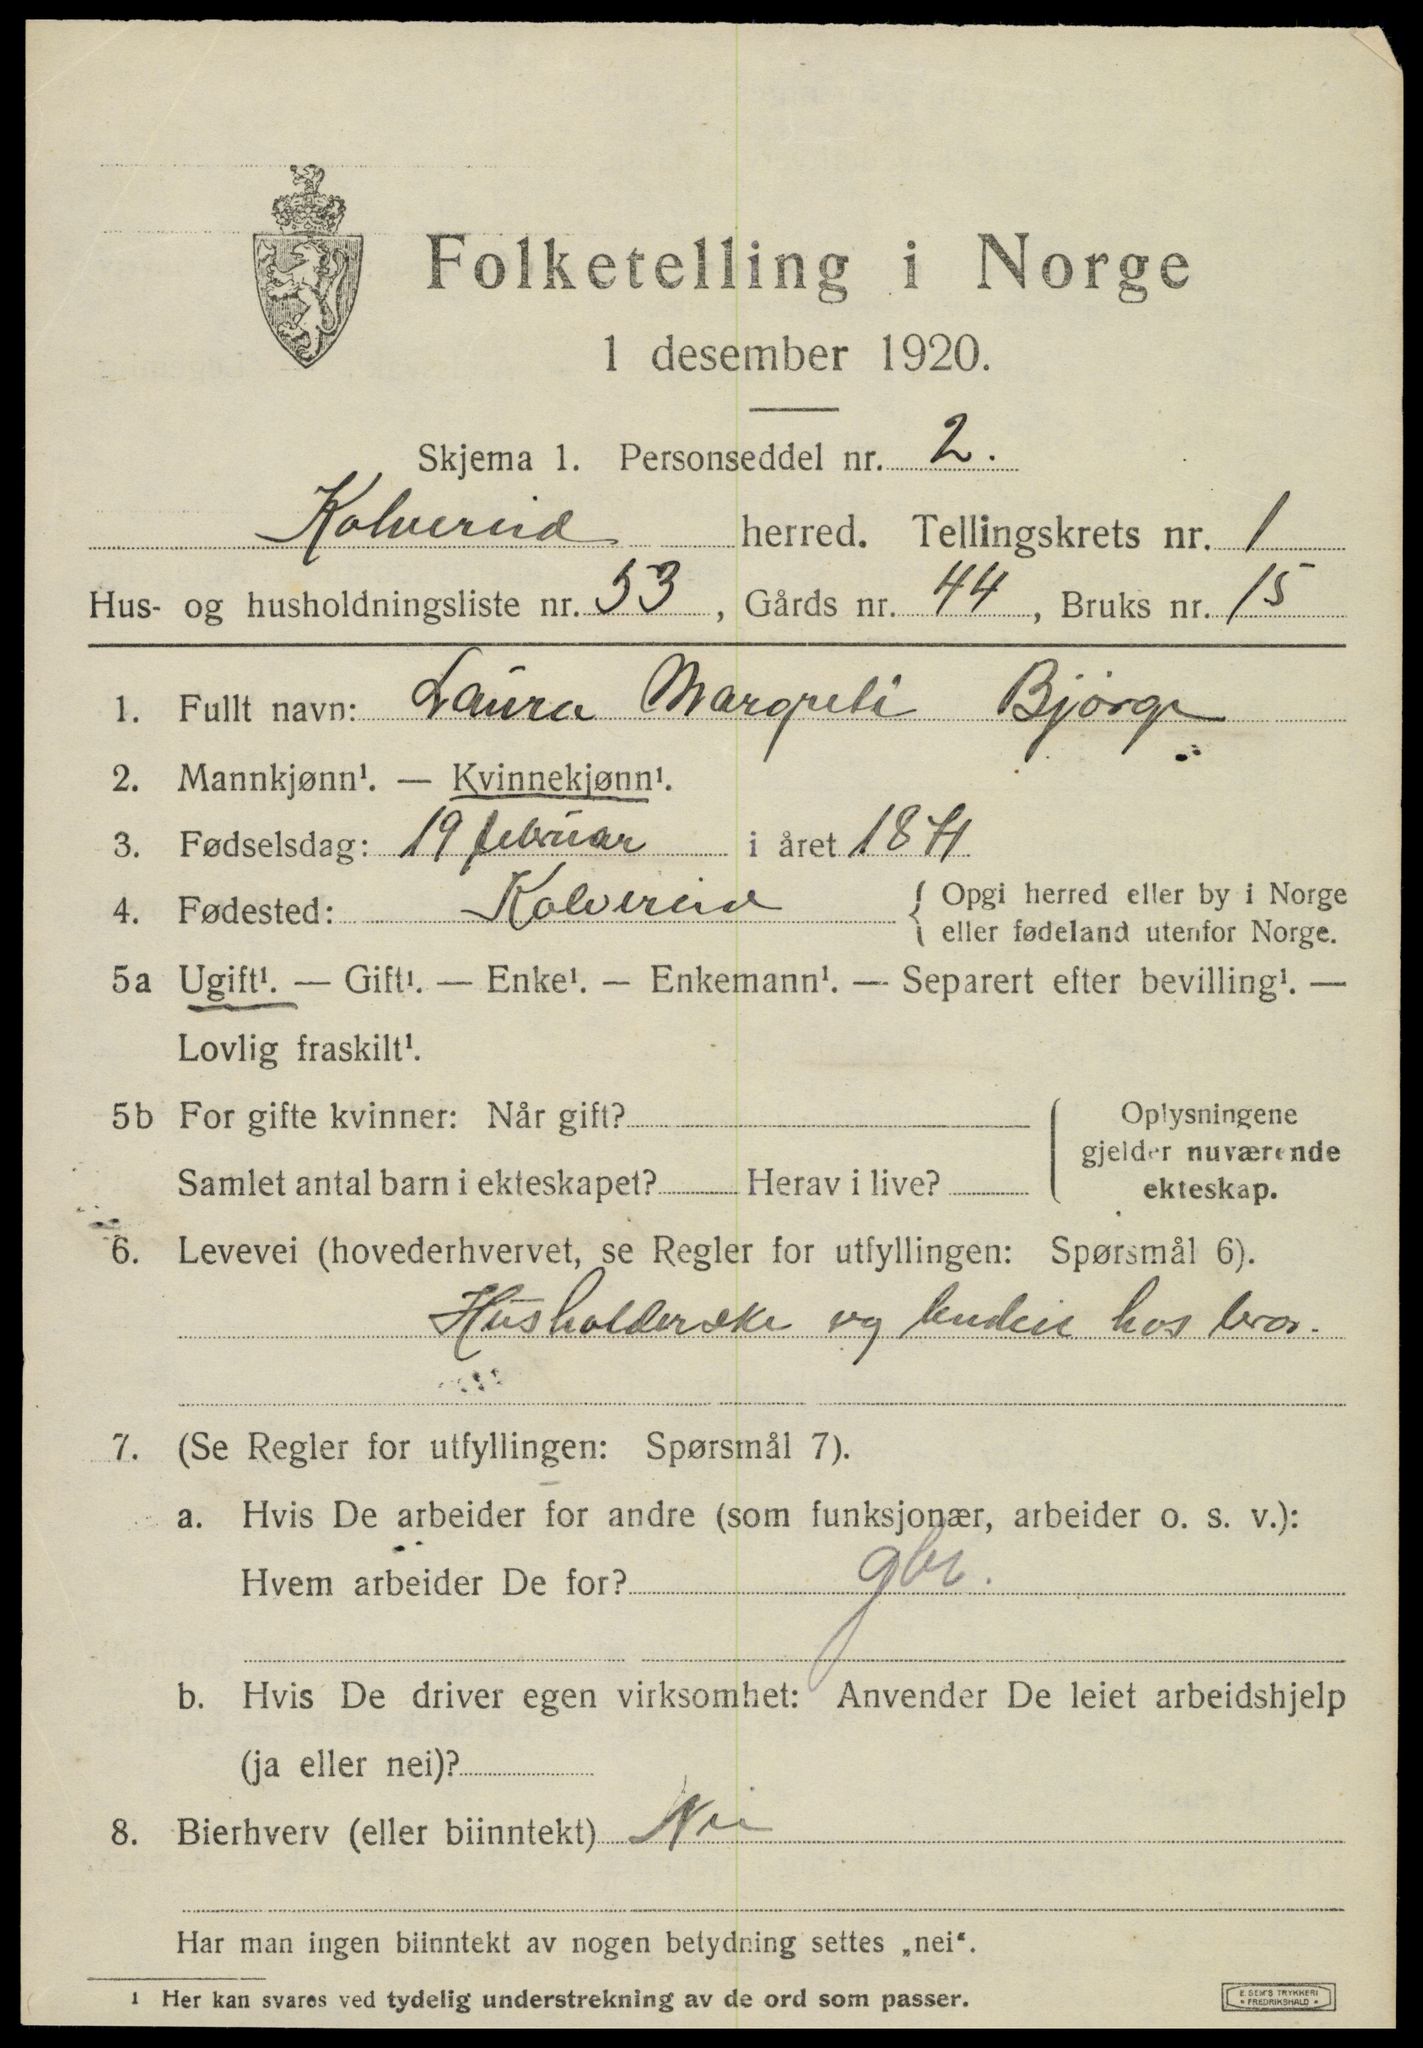 Folketelling i Norge
1 desember 1920.
Skjema 1. Personseddel nr. 2.
Kolvereid herred. Tellingskrets nr. 1
Hus- og husholdningsliste nr. 53, Gårds nr. 44, Bruks nr. 15
1. Fullt navn: Laura Margrete Bjørge
2. Mannkjønn¹. — Kvinnekjønn¹.
3. Fødselsdag: 19 februar i året 1871
4. Fødested: Kolvereid { Opgi herred eller by i Norge
eller fødeland utenfor Norge.
5a Ugift¹. — Gift¹. — Enke¹. — Enkemann¹. — Separert efter bevilling¹. —
Lovlig fraskilt¹.
5b For gifte kvinner: Når gift?
Samlet antal barn i ekteskapet? Herav i live?
Oplysningene
gjelder nuværende
ekteskap.
6. Levevei (hovederhvervet, se Regler for utfyllingen: Spørsmål 6).
Husholderske og hos bror.
7. (Se Regler for utfyllingen: Spørsmål 7).
a. Hvis De arbeider for andre (som funksjonær, arbeider o. s. v.):
Hvem arbeider De for? gbr.
b. Hvis De driver egen virksomhet: Anvender De leiet arbeidshjelp
(ja eller nei)?
8. Bierhverv (eller biinntekt) Nei
Har man ingen biinntekt av nogen betydning settes „nei“.
1 Her kan svares ved tydelig understrekning av de ord som passer.
E. SEM'S TRYKKERI
• FREDRIKSHALD •